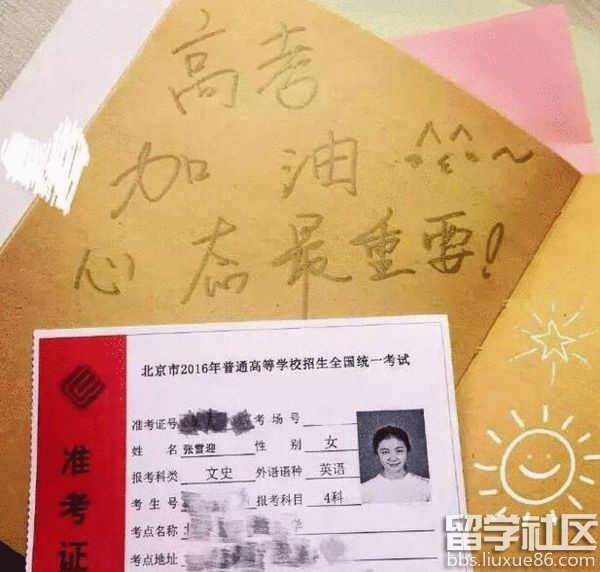 高考
加油
心态最重要!
北京市2016年普通高等学校招生全国统一考试
准考证
准考证号 考场号
姓名 张雪迎 性别 女
报考科类 文史 外语语种 英语
考生号 报考科目 4科
考点名称 北 学
考点地址
留学社区
bbs.liuxue86.com